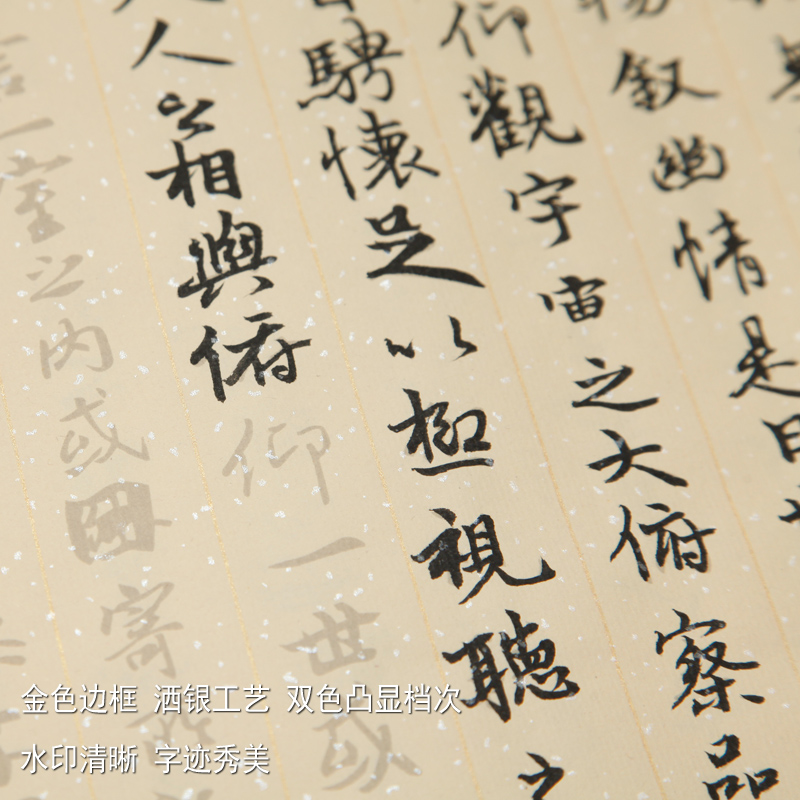 叙幽情是日也
仰觀宇宙之大俯察品
騁懷足以極視聽之
人之相與俯仰一世或
言一室之内或因寄
金色边框 洒银工艺 双色凸显档次
水印清晰 字迹秀美